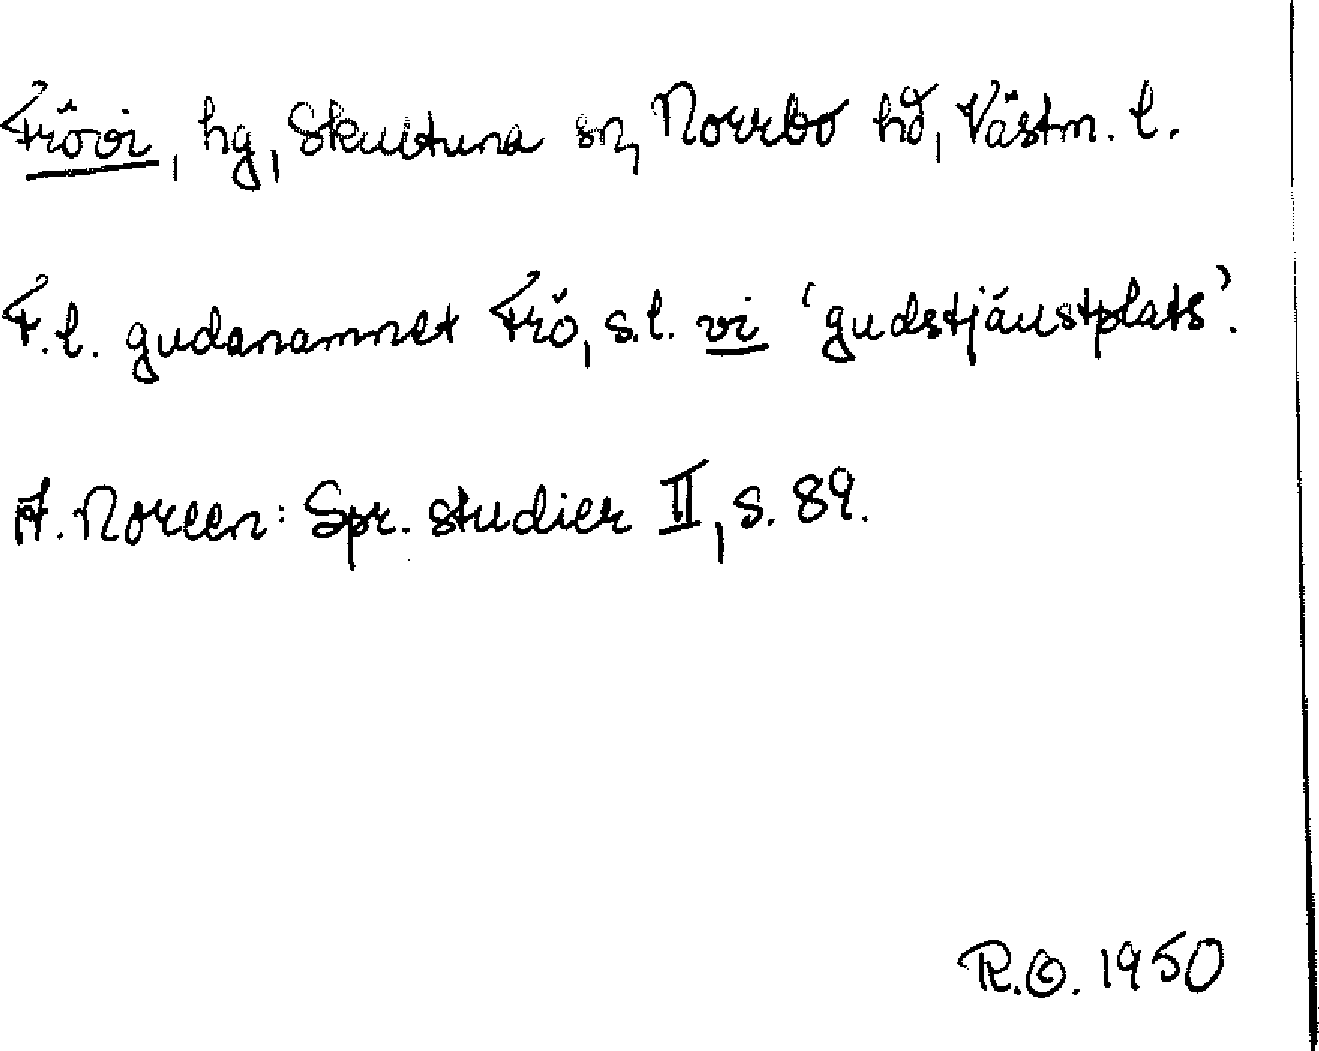 Frövi, hg, Skultuna sn, Norrbo hd, Västm. l.
F.l. gudanamnet Frö, s.l. vi 'gudstjänstplats'.
A. Noreen: Spr. studier II, s. 89.
R.O. 1950